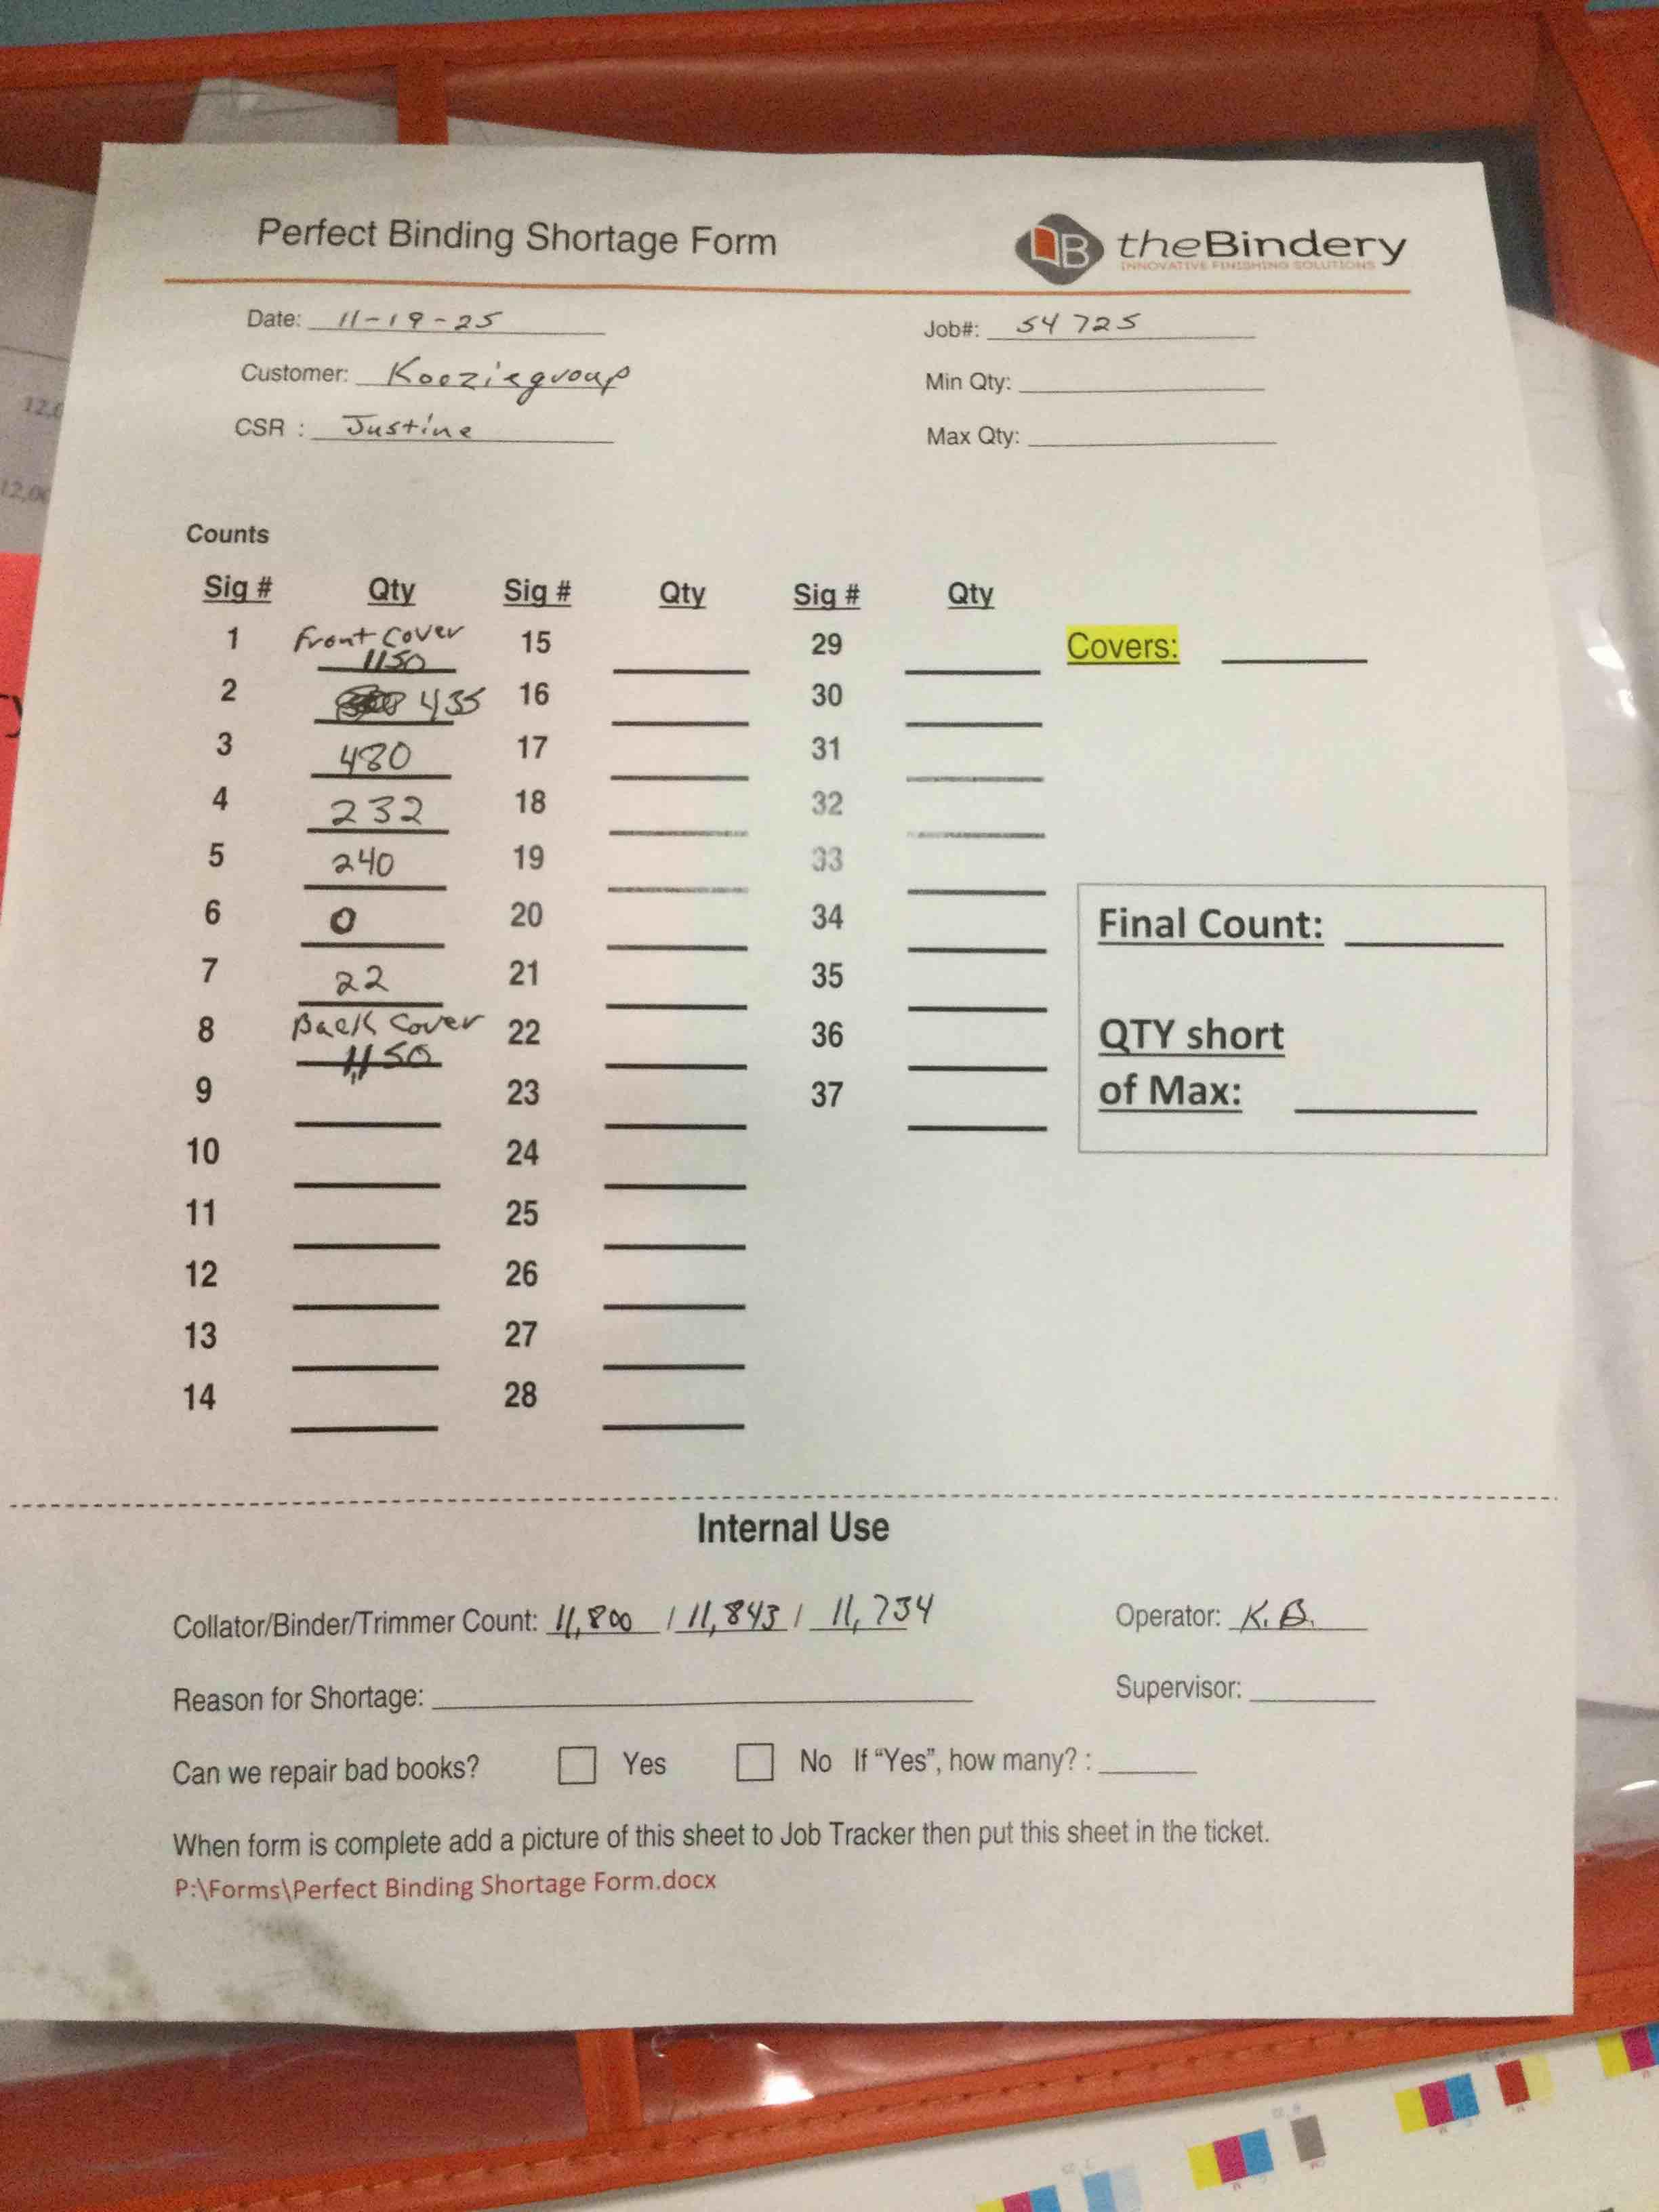 Perfect Binding Shortage Form
theBindery
INNOVATIVE FINISHING SOLUTIONS
Date: 11-19-25 Job#: 54725
Customer: Kooziegroup Min Qty:
CSR : Justine Max Qty:
Counts
Sig # Qty Sig # Qty Sig # Qty
1 Front Cover 1150 15 29 Covers:
2 435 16 30
3 480 17 31
4 232 18 32
5 240 19 33
6 0 20 34 Final Count:
7 22 21 35
8 Back Cover 1,150 22 36 QTY short
9 23 37 of Max:
10 24
11 25
12 26
13 27
14 28
Internal Use
Collator/Binder/Trimmer Count: 11,800 / 11,843 / 11,734 Operator: K.B.
Reason for Shortage: Supervisor:
Can we repair bad books? Yes No If “Yes”, how many? :
When form is complete add a picture of this sheet to Job Tracker then put this sheet in the ticket.
P:\Forms\Perfect Binding Shortage Form.docx